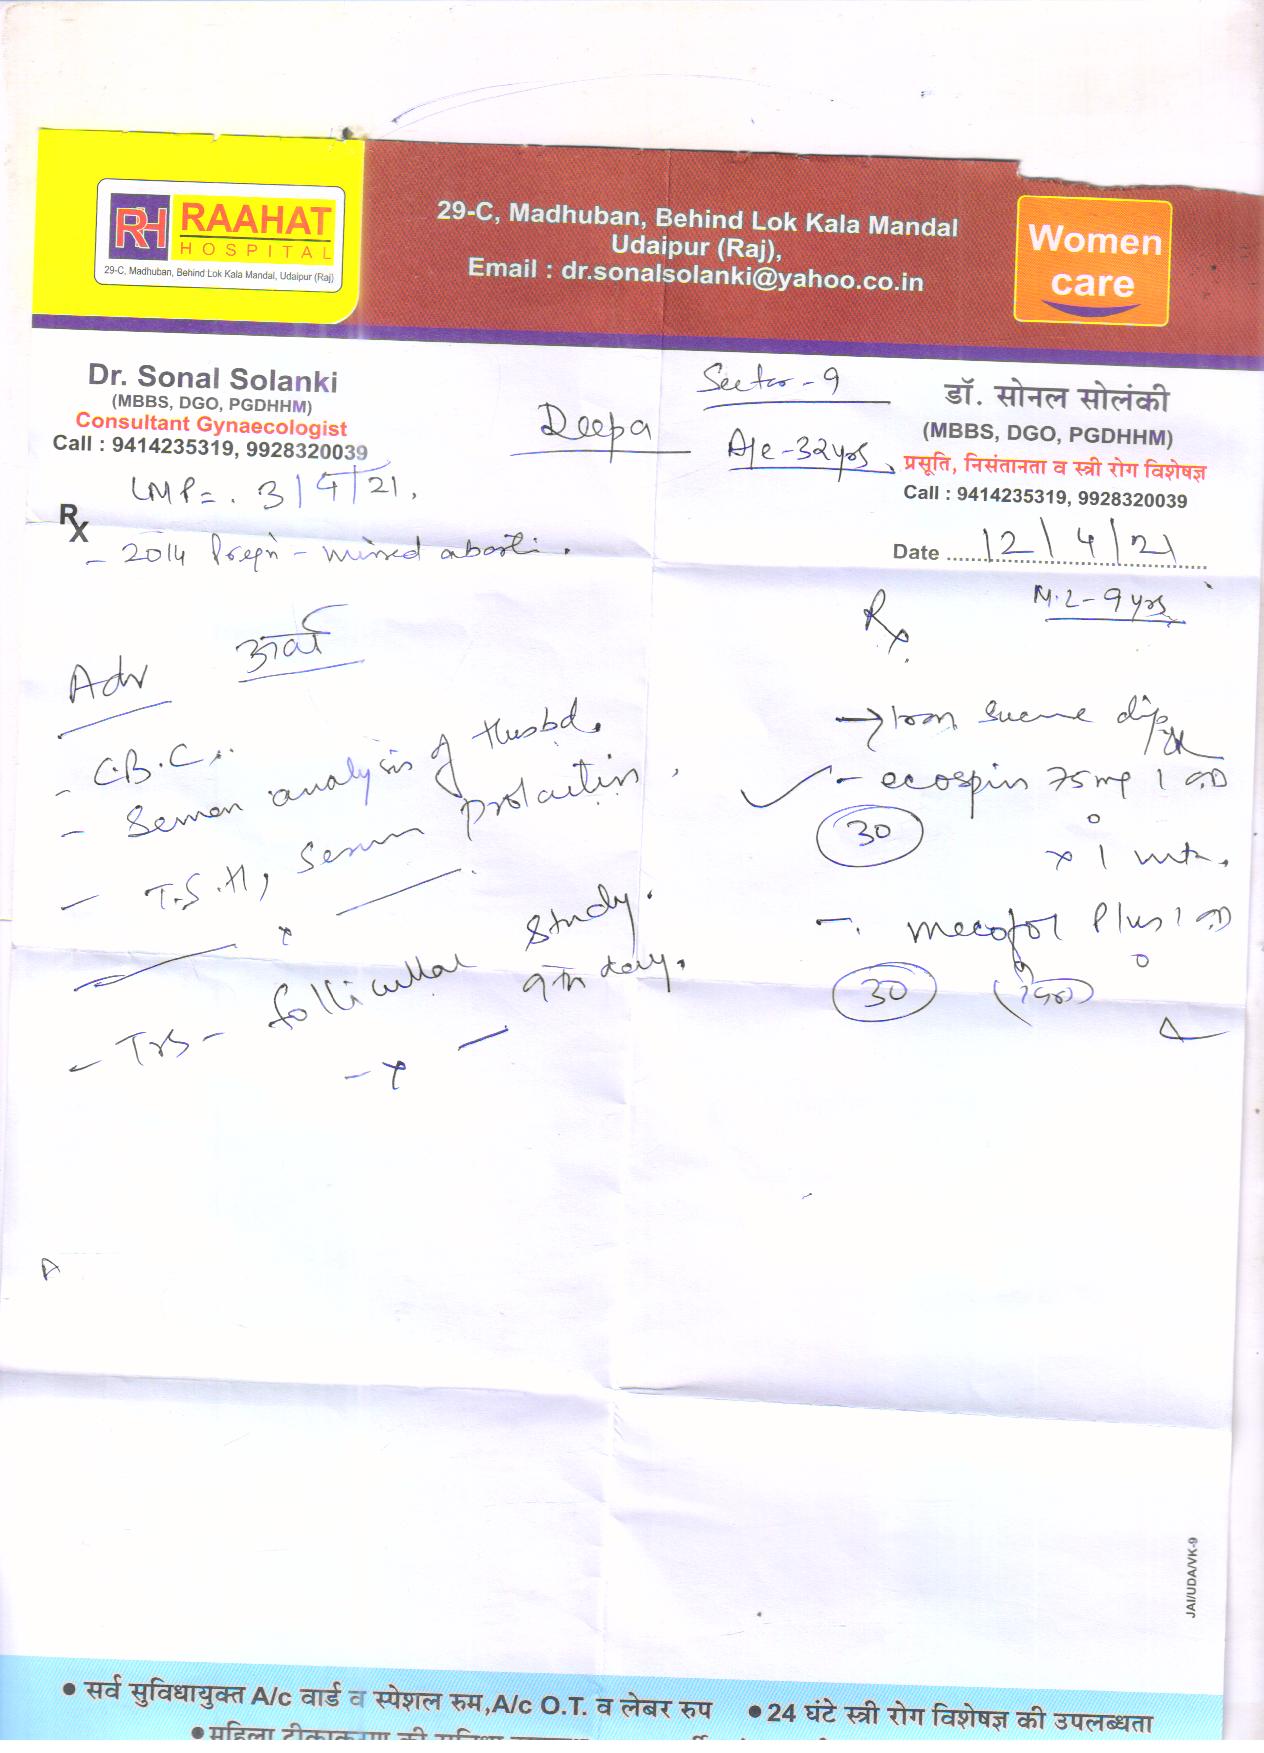 RH RAAHAT
HOSPITAL
29-C, Madhuban, Behind Lok Kala Mandal, Udaipur (Raj)
29-C, Madhuban, Behind Lok Kala Mandal
Udaipur (Raj),
Email : dr.sonalsolanki@yahoo.co.in
Women
care
Dr. Sonal Solanki
(MBBS, DGO, PGDHHM)
Consultant Gynaecologist
Call : 9414235319, 9928320039
Deepa
Sector-9
Age-32yrs
डॉ. सोनल सोलंकी
(MBBS, DGO, PGDHHM)
प्रसूति, निसंतानता व स्त्री रोग विशेषज्ञ
Call : 9414235319, 9928320039
LMP=. 3/4/21.
Rx
Date 12/4/21
- 2014 Pregn - missed aborti.
M.L-9yrs
Adv
- C.B.C.
- Semen analysis of Husbd.
- T.S.H, Serum prolactin
- TVS- follicullar study.
9th day.
- x -
Rx
→ Iron Sucrose
- ecosprin 75mg 1 OD
30
x 1 mth.
- mecofol Plus 1 OD
30
JAI/UDA/VK-9
• सर्व सुविधायुक्त A/c वार्ड व स्पेशल रुम,A/c O.T. व लेबर रुप
• 24 घंटे स्त्री रोग विशेषज्ञ की उपलब्धता